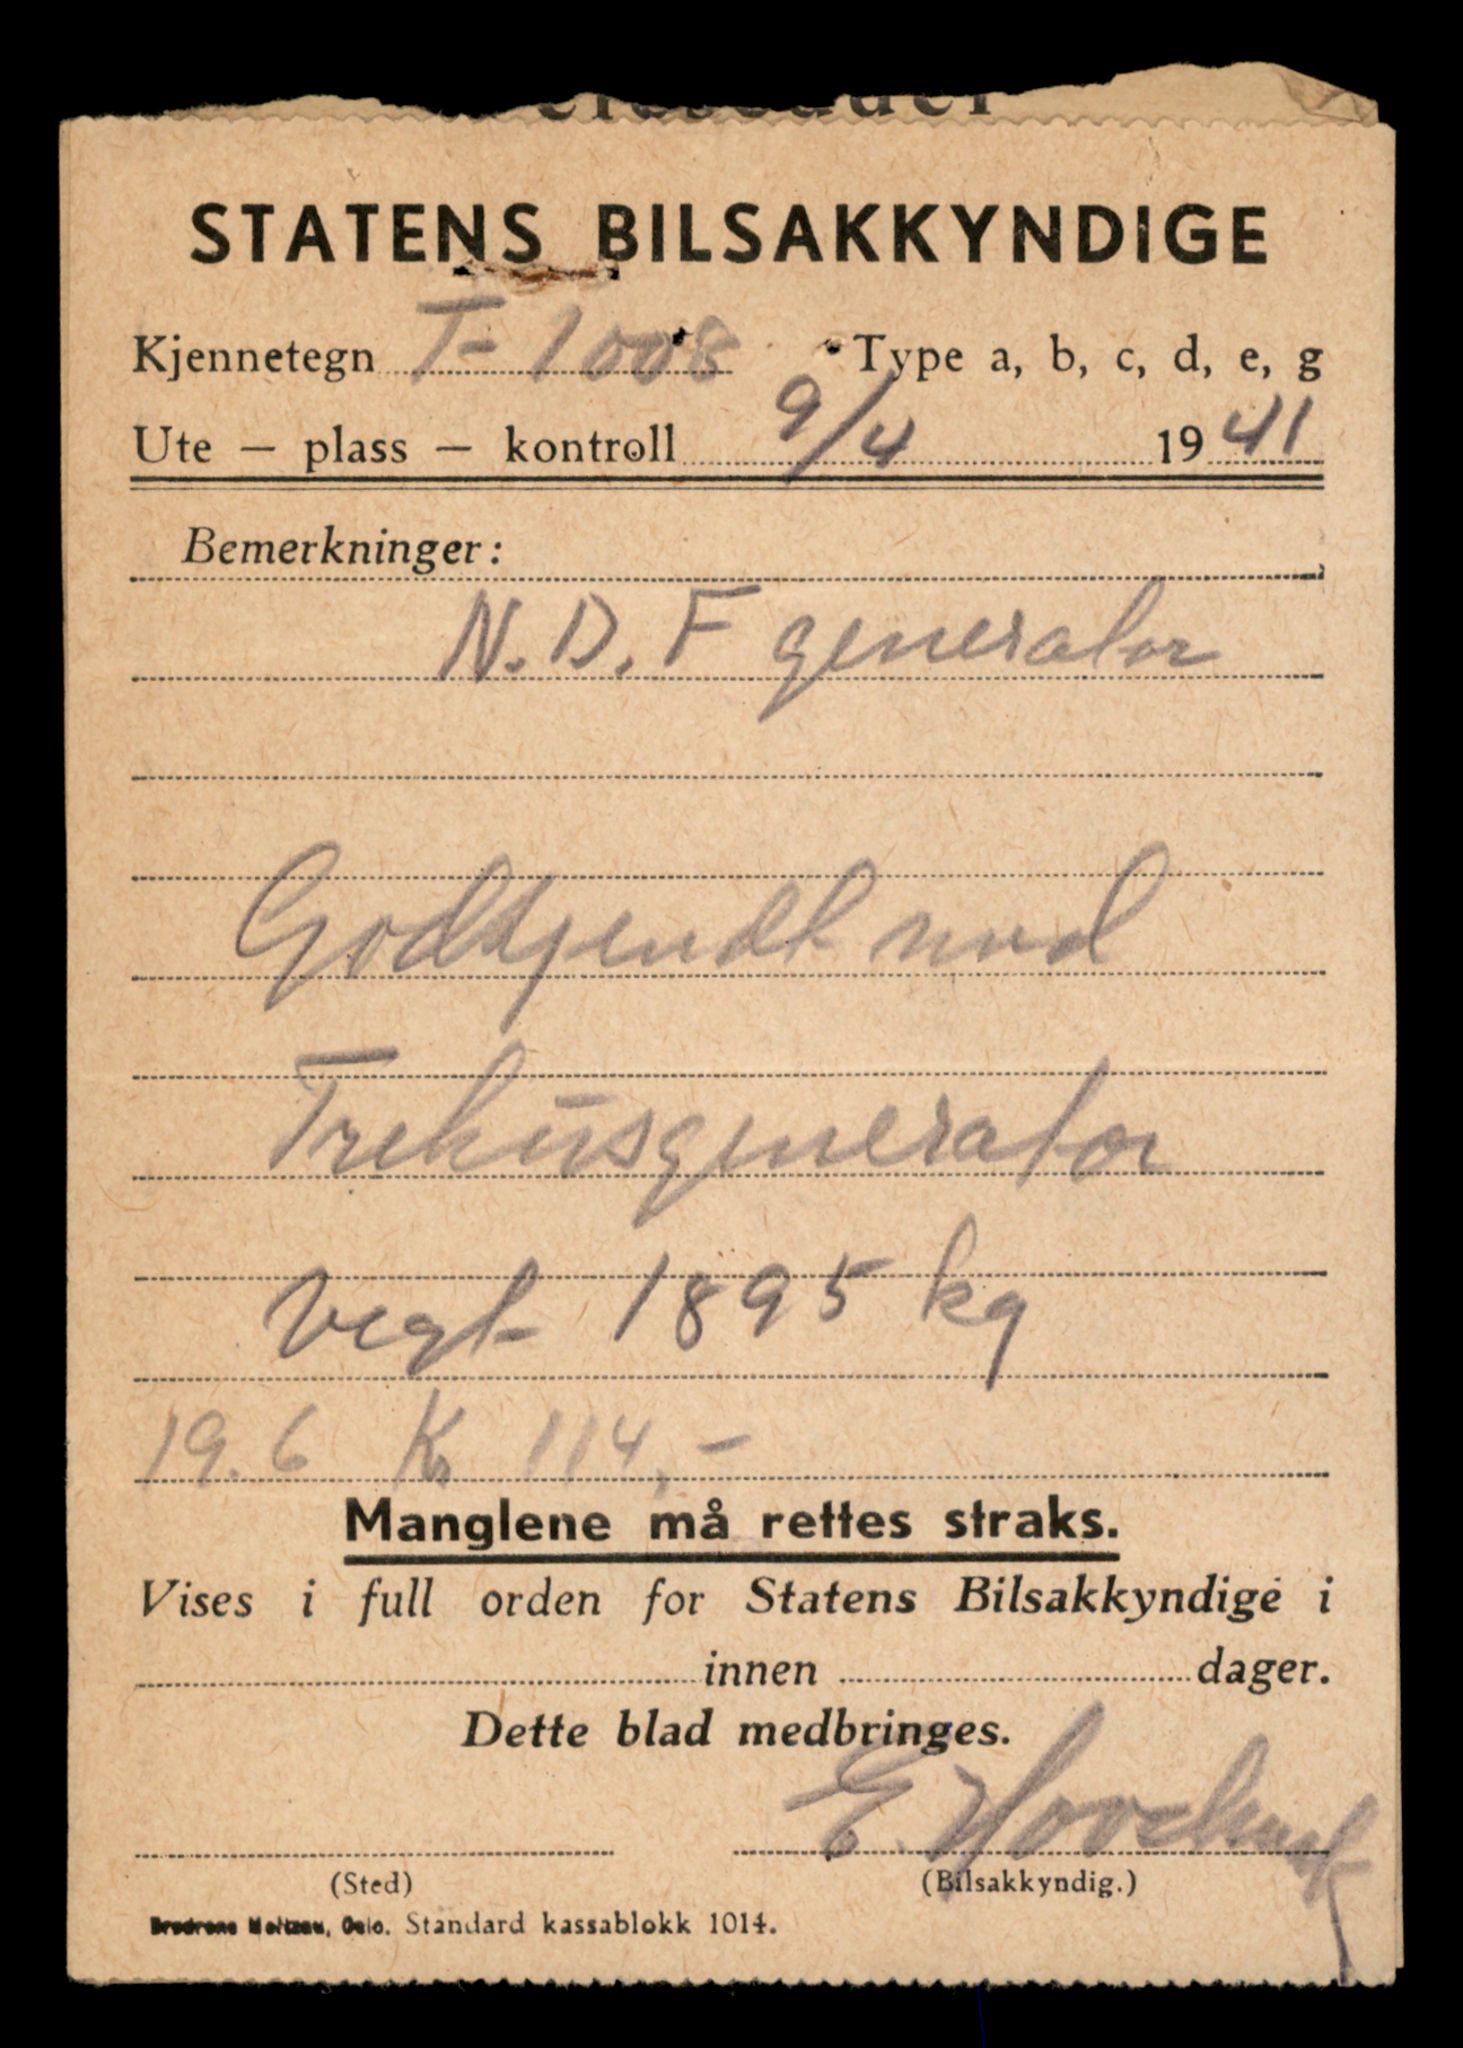 STATENS BILSAKKYNDIGE
Kjennetegn T-1008 Type a, b, c, d, e, g
Ute — plass — kontroll 9/4 1941
Bemerkninger:
N.D.F generator
Godkjendt med
Treküsgenerator
Vegt 1895 kg
19.6 Kr 114,-
Manglene må rettes straks.
Vises i full orden for Statens Bilsakkyndige i
innen dager.
Dette blad medbringes.
E.
(Sted) (Bilsakkyndig.)
Brødrene Meltzau, Oslo. Standard kassablokk 1014.